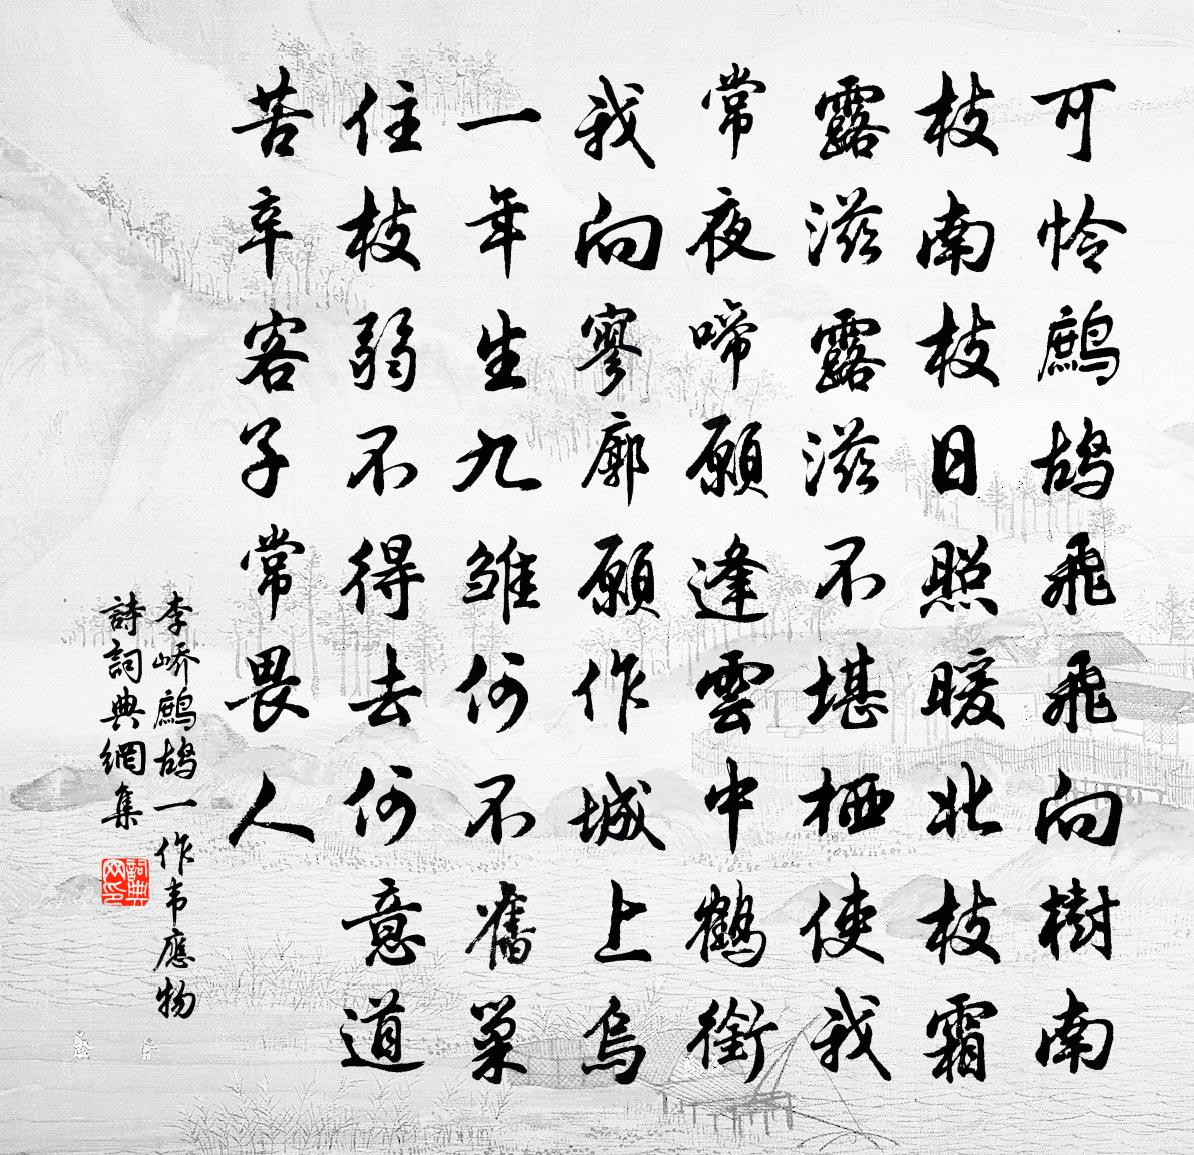 可怜鷓鴣飛飛向樹南
枝南枝日照暖北枝霜
露滋露滋不堪栖使我
常夜啼願逢雲中鶴銜
我向寥廓願作城上烏
一年生九雛何不舊巢
住枝弱不得去何意道
苦辛客子常畏人
李峤鷓鴣一作韦應物
詩詞典網集
詞典网印